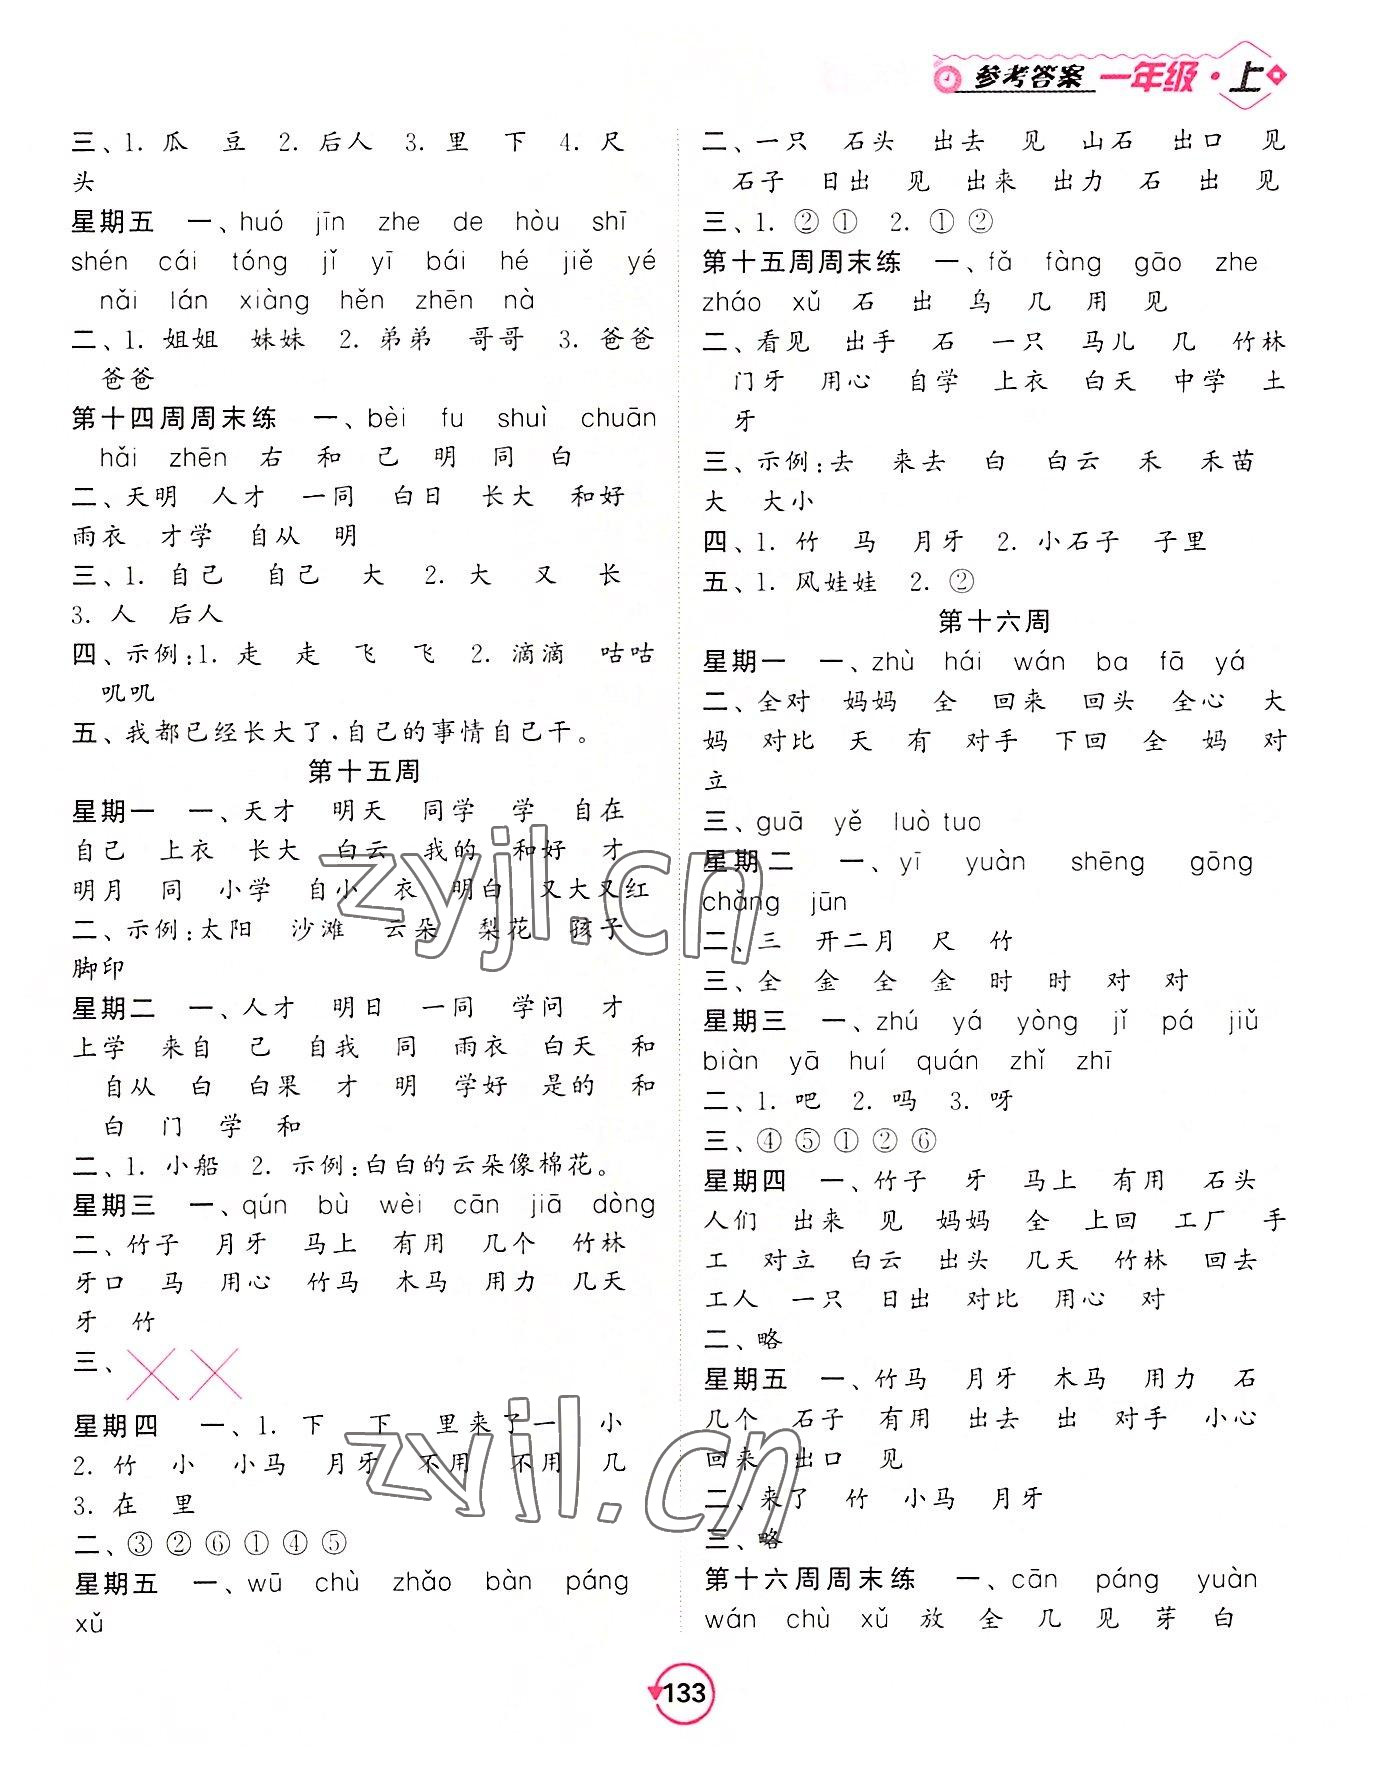 参考答案 一年级·上
三、1. 瓜 豆 2. 后人 3. 里 下 4. 尺
头
星期五 一、huó jīn zhe de hòu shī
shén cái tóng jǐ yī bái hé jiě yé
nǎi lán xiàng hěn zhēn nà
二、1. 姐姐 妹妹 2. 弟弟 哥哥 3. 爸爸
爸爸
第十四周周末练 一、bèi fu shuì chuān
hǎi zhēn 右 和 己 明 同 白
二、天明 人才 一同 白日 长大 和好
雨衣 才学 自从 明
三、1. 自己 自己 大 2. 大 又 长
3. 人 后人
四、示例:1. 走 走 飞 飞 2. 滴滴 咕咕
叽叽
五、我都已经长大了,自己的事情自己干。
第十五周
星期一 一、天才 明天 同学 学 自在
自己 上衣 长大 白云 我的 和好 才
明月 同 小学 自小 衣 明白 又大又红
二、示例:太阳 沙滩 云朵 梨花 孩子
脚印
星期二 一、人才 明日 一同 学问 才
上学 来自 己 自我 同 雨衣 白天 和
自从 白 白果 才 明 学好 是的 和
白 门 学 和
二、1. 小船 2. 示例:白白的云朵像棉花。
星期三 一、qún bù wèi cān jiā dòng
二、竹子 月牙 马上 有用 几个 竹林
牙口 马 用心 竹马 木马 用力 几天
牙 竹
三、
星期四 一、1. 下 下 里来了一 小
2. 竹 小 小马 月牙 不用 不用 几
3. 在 里
二、③ ② ⑥ ① ④ ⑤
星期五 一、wū chù zhǎo bàn páng
xǔ
二、一只 石头 出去 见 山石 出口 见
石子 日出 见 出来 出力 石 出 见
三、1. ② ① 2. ① ②
第十五周周末练 一、fǎ fàng gāo zhe
zháo xǔ 石 出 乌 几 用 见
二、看见 出手 石 一只 马儿 几 竹林
门牙 用心 自学 上衣 白天 中学 土
牙
三、示例:去 来去 白 白云 禾 禾苗
大 大小
四、1. 竹 马 月牙 2. 小石子 子里
五、1. 风娃娃 2. ②
第十六周
星期一 一、zhù hái wán ba fā yá
二、全对 妈妈 全 回来 回头 全心 大
妈 对比 天 有 对手 下回 全 妈 对
立
三、guā yě luò tuo
星期二 一、yī yuàn shēng gōng
chǎng jūn
二、三 开二月 尺 竹
三、全 金 全 金 时 时 对 对
星期三 一、zhú yá yòng jǐ pá jiǔ
biàn yā huí quán zhǐ zhī
二、1. 吧 2. 吗 3. 呀
三、④ ⑤ ① ② ⑥
星期四 一、竹子 牙 马上 有用 石头
人们 出来 见 妈妈 全 上回 工厂 手
工 对立 白云 出头 几天 竹林 回去
工人 一只 日出 对比 用心 对
二、略
星期五 一、竹马 月牙 木马 用力 石
几个 石子 有用 出去 出 对手 小心
回来 出口 见
二、来了 竹 小马 月牙
三、略
第十六周周末练 一、cān páng yuàn
wán chù xǔ 放 全 几 见 芽 白
133
zyjl.cn
zyjl.cn